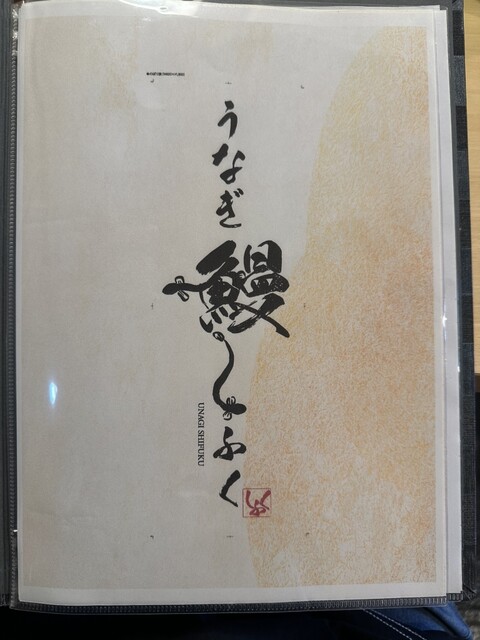 うなぎ鰻しふく
UNAGI SHIFUKU